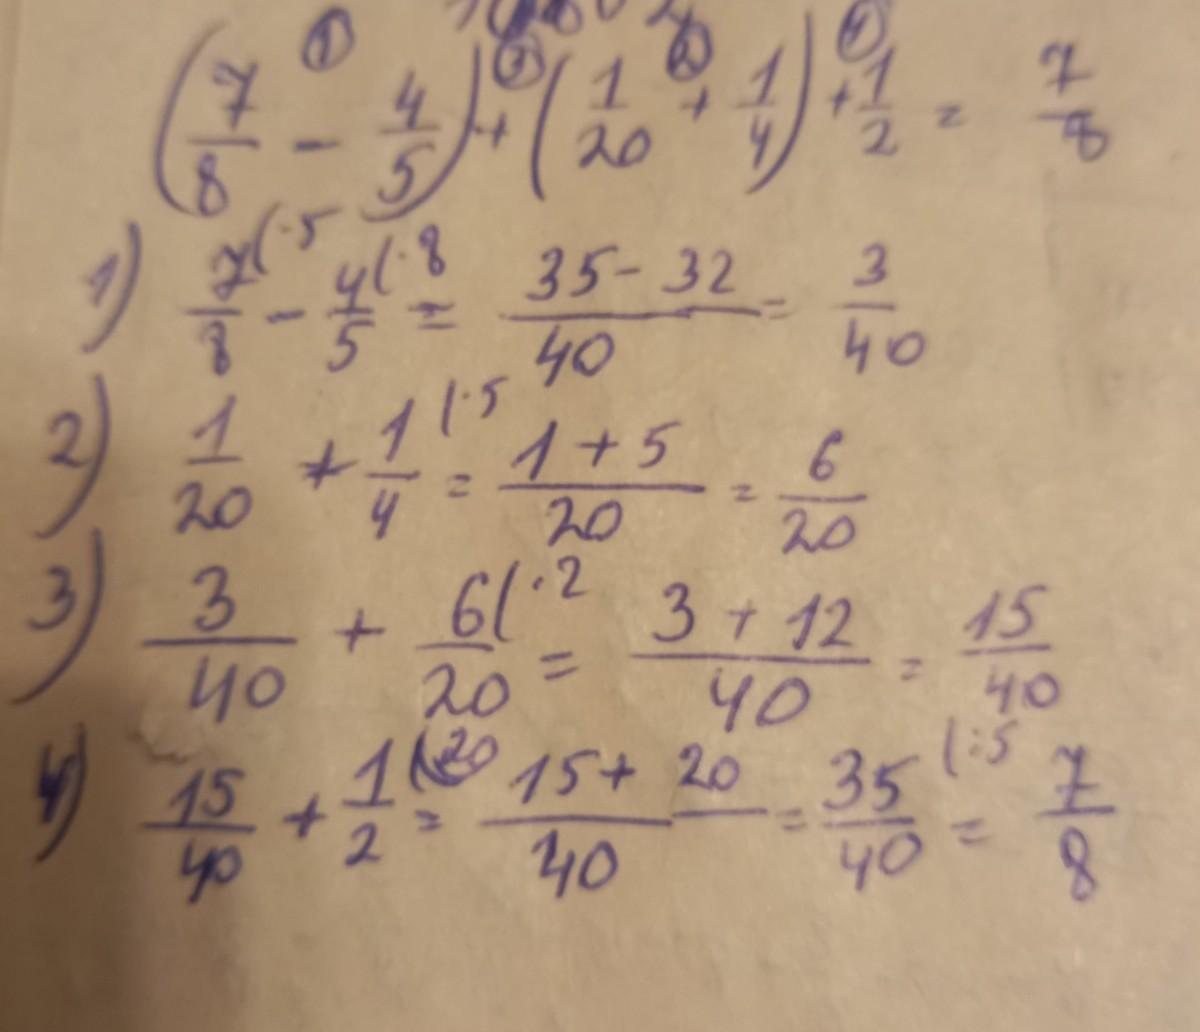 (7/8 - 4/5) + (1/20 + 1/4) + 1/2 = 7/8
1) 7/8 (·5 - 4/5 (·8 = 35-32/40 = 3/40
2) 1/20 + 1/4 (·5 = 1+5/20 = 6/20
3) 3/40 + 6/20 (·2 = 3+12/40 = 15/40
4) 15/40 + 1/2 (·20 = 15+20/40 = 35/40 (:5 = 7/8